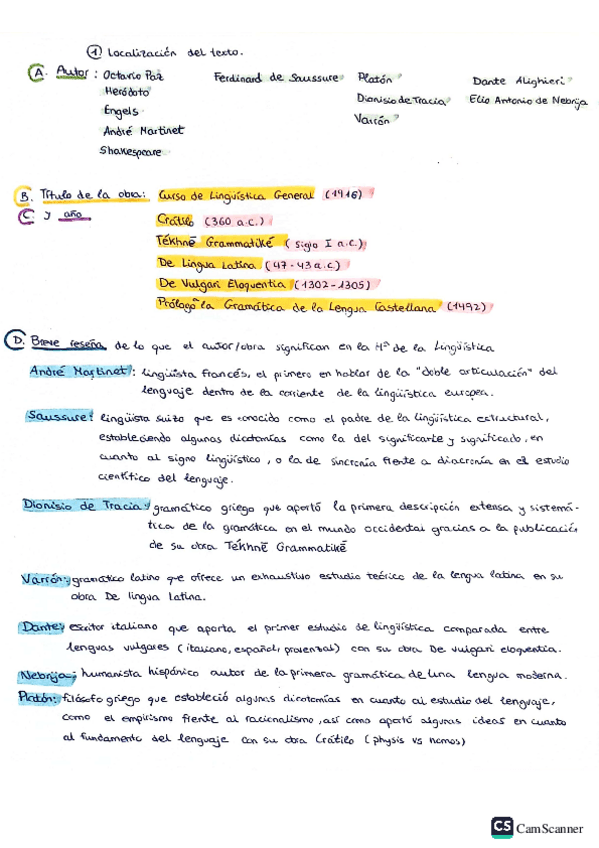 ① Localización del texto.
A. Autor: Octavio Paz Ferdinand de Saussure Platón Dante Alighieri
Heródoto Dionisio de Tracia Elio Antonio de Nebrija
Engels Varrón
André Martinet
Shakespeare
B. Título de la obra: Curso de Lingüística General (1916)
C. y año Crátilo (360 a.C.)
Tékhnē Grammatiké (siglo I a.C.)
De Lingua Latina (47-43 a.C)
De Vulgari Eloquentia (1302-1305)
Prólogo la Gramática de la Lengua Castellana (1492)
D. Breve reseña de lo que el autor/obra significan en la Hª de la Lingüística
André Martinet: lingüista francés, el primero en hablar de la "doble articulación" del
lenguaje dentro de la corriente de la lingüística europea.
Saussure: lingüista suizo que es conocido como el padre de la lingüística estructural,
estableciendo algunas dicotomías como la del significante y significado, en
cuanto al signo lingüístico, o la de sincronía frente a diacronía en el estudio
científico del lenguaje.
Dionisio de Tracia: gramático griego que aportó la primera descripción extensa y sistemá-
tica de la gramática en el mundo occidental gracias a la publicación
de su obra Tékhnē Grammatikē
Varrón: gramático latino que ofrece un exhaustivo estudio teórico de la lengua latina en su
obra De lingua Latina.
Dante: escritor italiano que aporta el primer estudio de lingüística comparada entre
lenguas vulgares (italiano, español, provenzal) con su obra De vulgari eloquentia.
Nebrija: humanista hispánico autor de la primera gramática de una lengua moderna.
Platón: filósofo griego que estableció algunas dicotomías en cuanto al estudio del lenguaje,
como el empirismo frente al racionalismo, así como aportó algunas ideas en cuanto
al fundamento del lenguaje con su obra Crátilo (physis vs nomos)
CS CamScanner